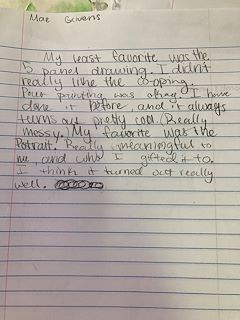 Mae Givens
My least favorite was the
5 panel drawing. I didn't
really like the co-oping.
Pour painting was okay. I have
done it before, and it always
turns out pretty cool. (Really
messy.) My favorite was the
Portrait. Really meaningful to
me, and who I gifted it to.
I think it turned out really
well.